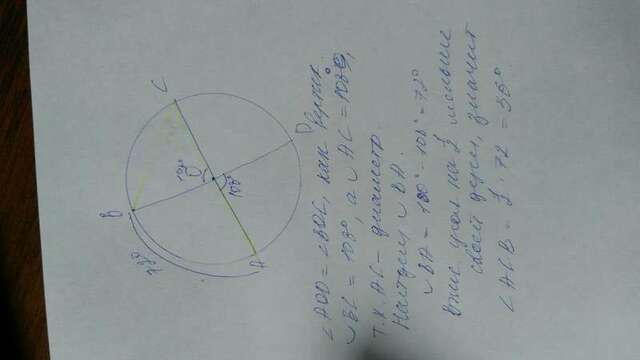 B
C
D
A
O
108°
108°
72°
∠AOD = ∠BOC, как вертик.
◡BC = 108°, а ◡AC = 180°,
т.к. AC - диаметр.
Найдем ◡BA.
◡BA = 180° - 108° = 72°
Впис. угол на 2 меньше
своей дуги, значит
∠ACB = 72 = 36°